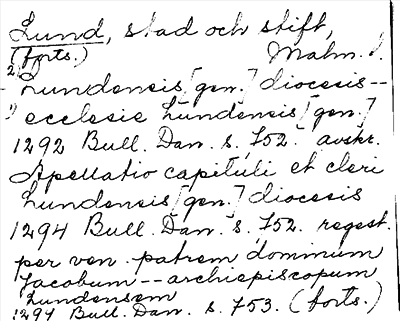 Lund, stad och stift,
(forts.) Malm. l.
Lundensis [gen.] diocesis --
ecclesie Lundensis [gen.]
1292 Bull. Dan. s. 752. avskr.
Apellatio capituli et cleri
Lundensis [gen.] diocesis
1294 Bull. Dan. s. 752. regest.
per ven. patrem dominum
Jacobum -- archiepiscopum
Lundensem
1294 Bull. Dan. s. 753. (forts.)